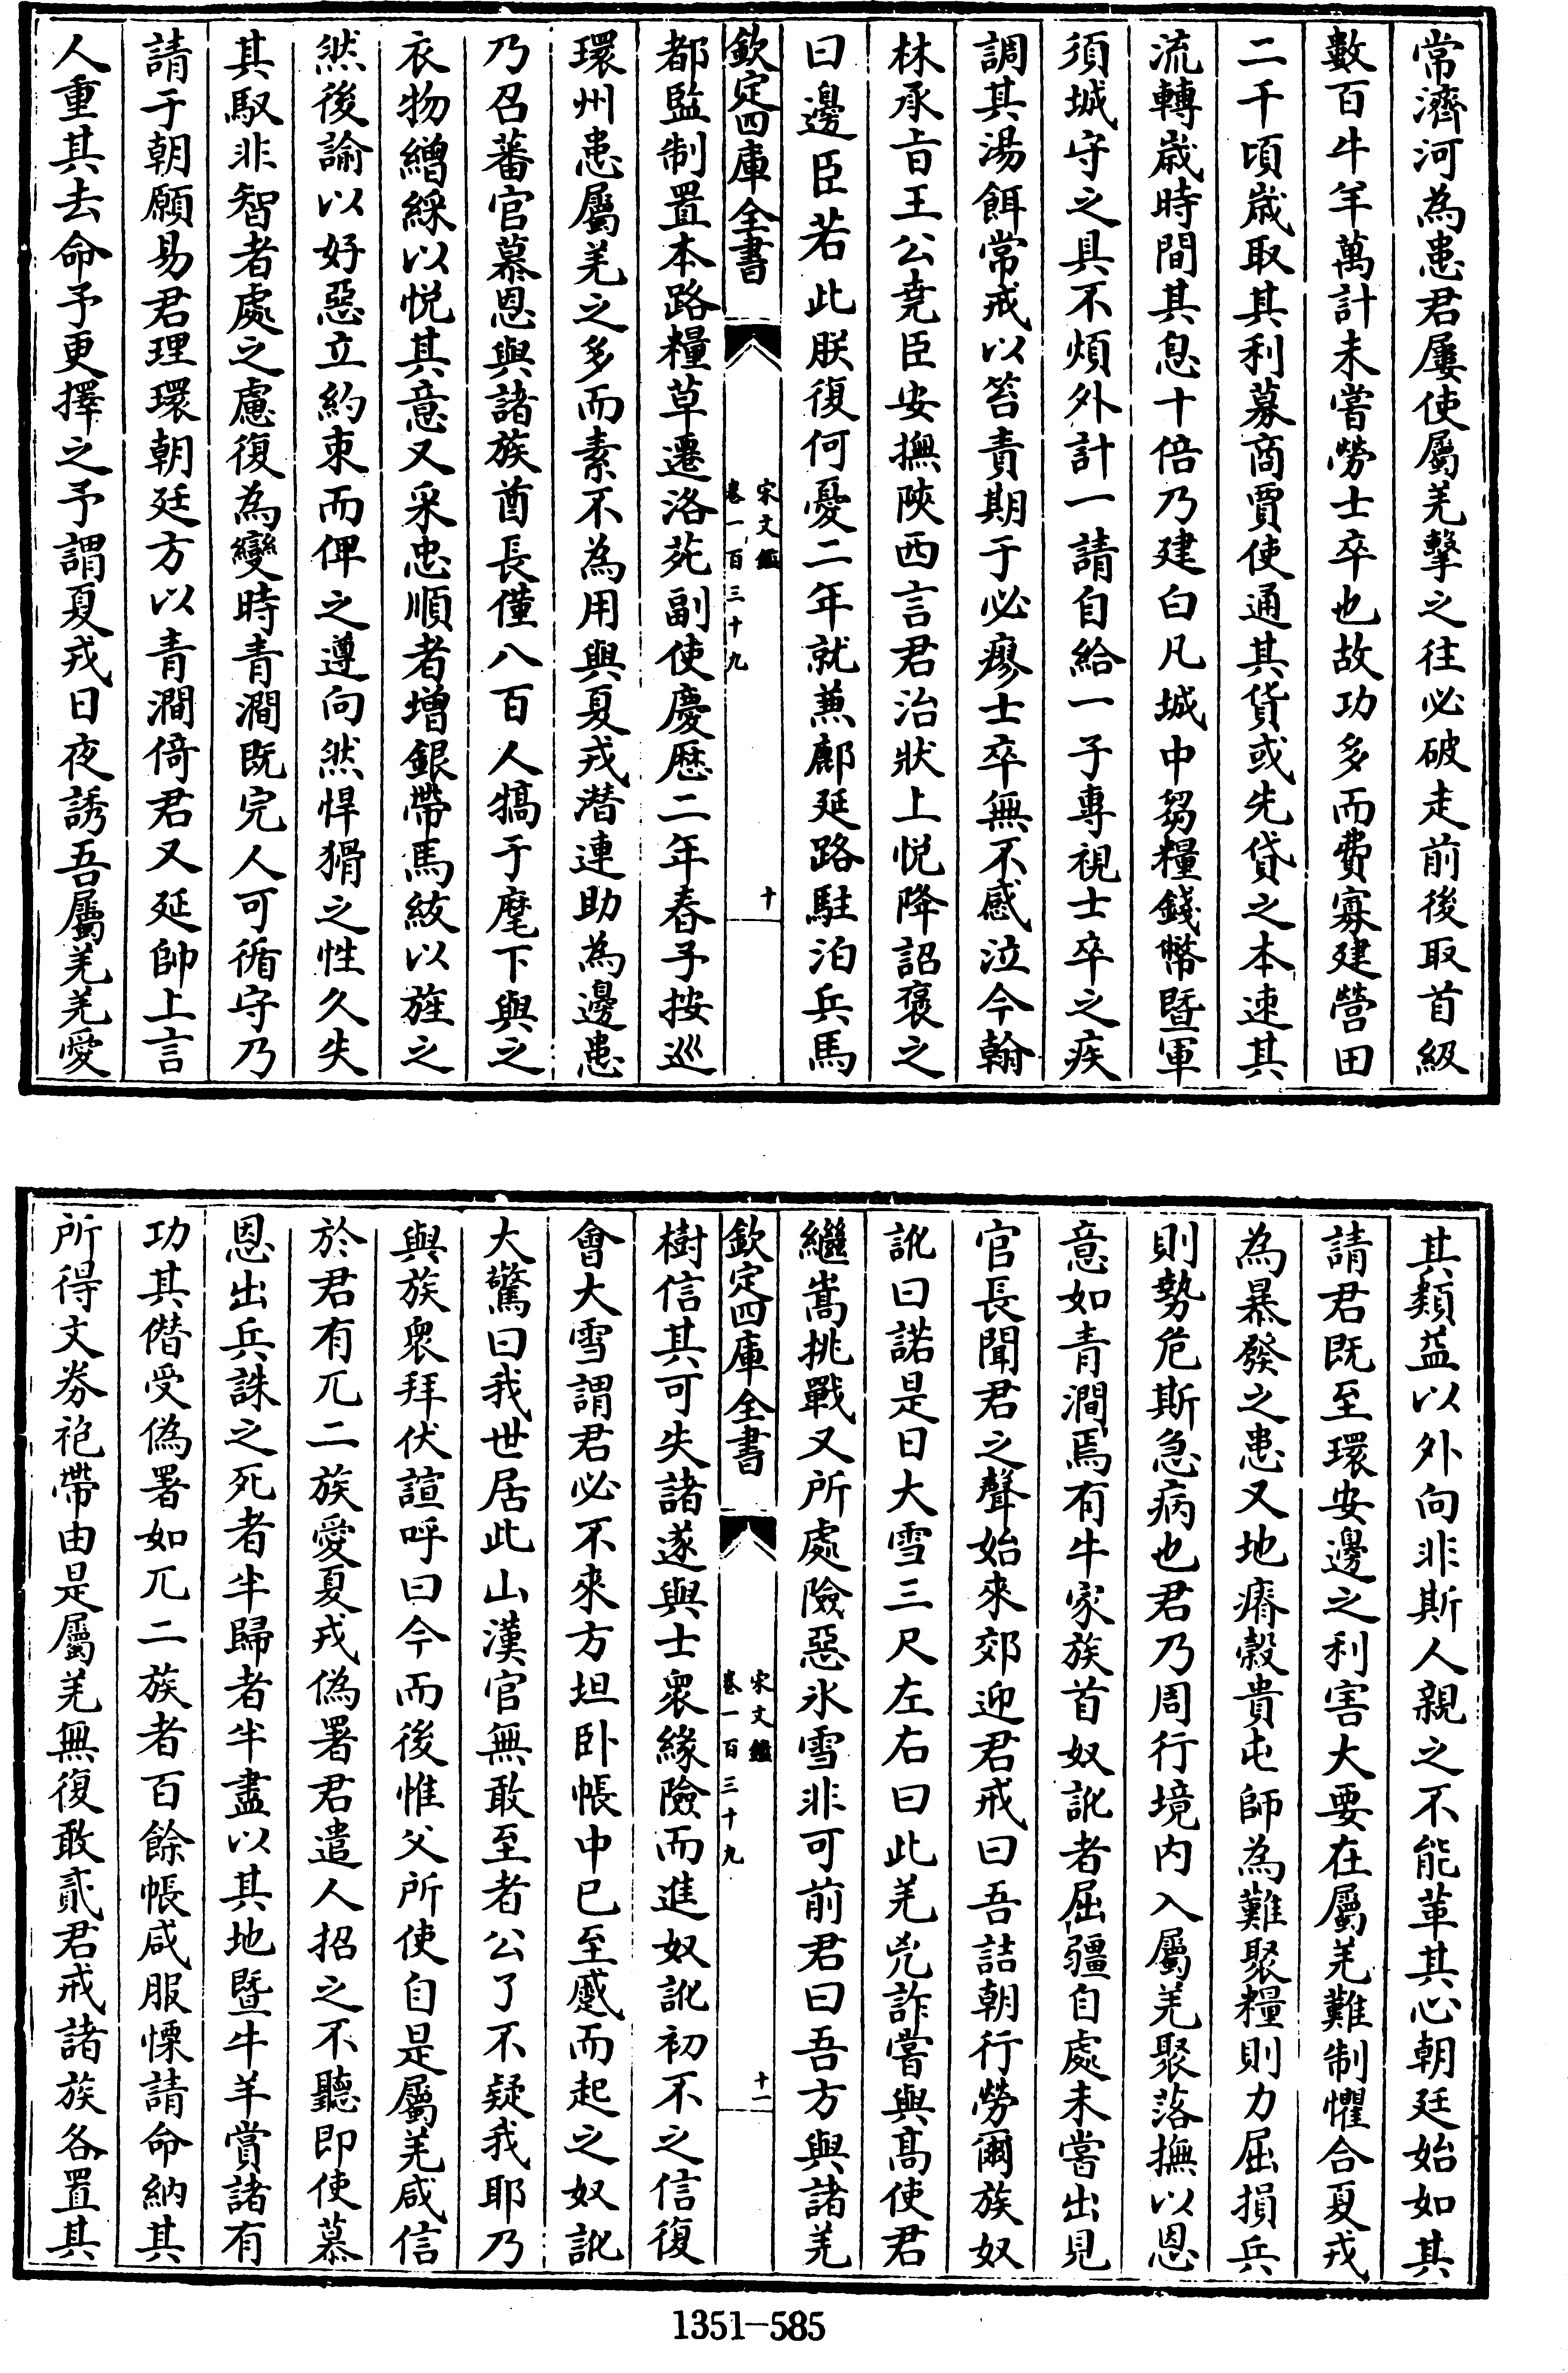 常濟河為患君屢使屬羌擊之往必破走前後取首級
數百牛羊萬計未嘗勞士卒也故功多而費寡建營田
二千頃歲取其利募商賈使通其貨或先貸之本速其
流轉歲時間其息十倍乃建白凡城中芻糧錢幣暨軍
須城守之具不煩外計一請自給一子專視士卒之疾
調其湯餌常戒以笞責期于必瘳士卒無不感泣今翰
林承旨王公堯臣安撫陜西言君治狀上悅降詔褒之
曰邊臣若此朕復何憂二年就兼鄜延路駐泊兵馬
欽定四庫全書
宋文鑑
卷一百三十九
十
都監制置本路糧草遷洛苑副使慶歷二年春予按巡
環州患屬羌之多而素不為用與夏戎潛連助為邊患
乃召蕃官慕恩與諸族酋長僅八百人犒于麾下與之
衣物繒綵以悅其意又采忠順者增銀帶馬紱以旌之
然後諭以好惡立約束而俾之遵向然悍猾之性久失
其馭非智者處之慮復為變時青澗既完人可循守乃
請于朝願易君理環朝廷方以青澗倚君又延帥上言
人重其去命予更擇之予謂夏戎日夜誘吾屬羌羌愛
其類益以外向非斯人親之不能革其心朝廷始如其
請君既至環安邊之利害大要在屬羌難制懼合夏戎
為暴發之患又地瘠穀貴屯師為難聚糧則力屈損兵
則勢危斯急病也君乃周行境內入屬羌聚落撫以恩
意如青澗焉有牛家族首奴訛者屈疆自處未嘗出見
官長聞君之聲始來郊迎君戒曰吾詰朝行勞爾族奴
訛曰諾是日大雪三尺左右曰此羌兇詐嘗與高使君
繼嵩挑戰又所處險惡氷雪非可前君曰吾方與諸羌
欽定四庫全書
宋文鑑
卷一百三十九
十一
樹信其可失諸遂與士衆緣險而進奴訛初不之信復
會大雪謂君必不來方坦卧帳中已至蹙而起之奴訛
大驚曰我世居此山漢官無敢至者公了不疑我耶乃
與族衆拜伏諠呼曰今而後惟父所使自是屬羌咸信
於君有兀二族愛夏戎偽署君遣人招之不聽即使慕
恩出兵誅之死者半歸者半盡以其地暨牛羊賞諸有
功其僭受偽署如兀二族者百餘帳咸服慄請命納其
所得文券袍帶由是屬羌無復敢貳君戒諸族各置其
1351-585